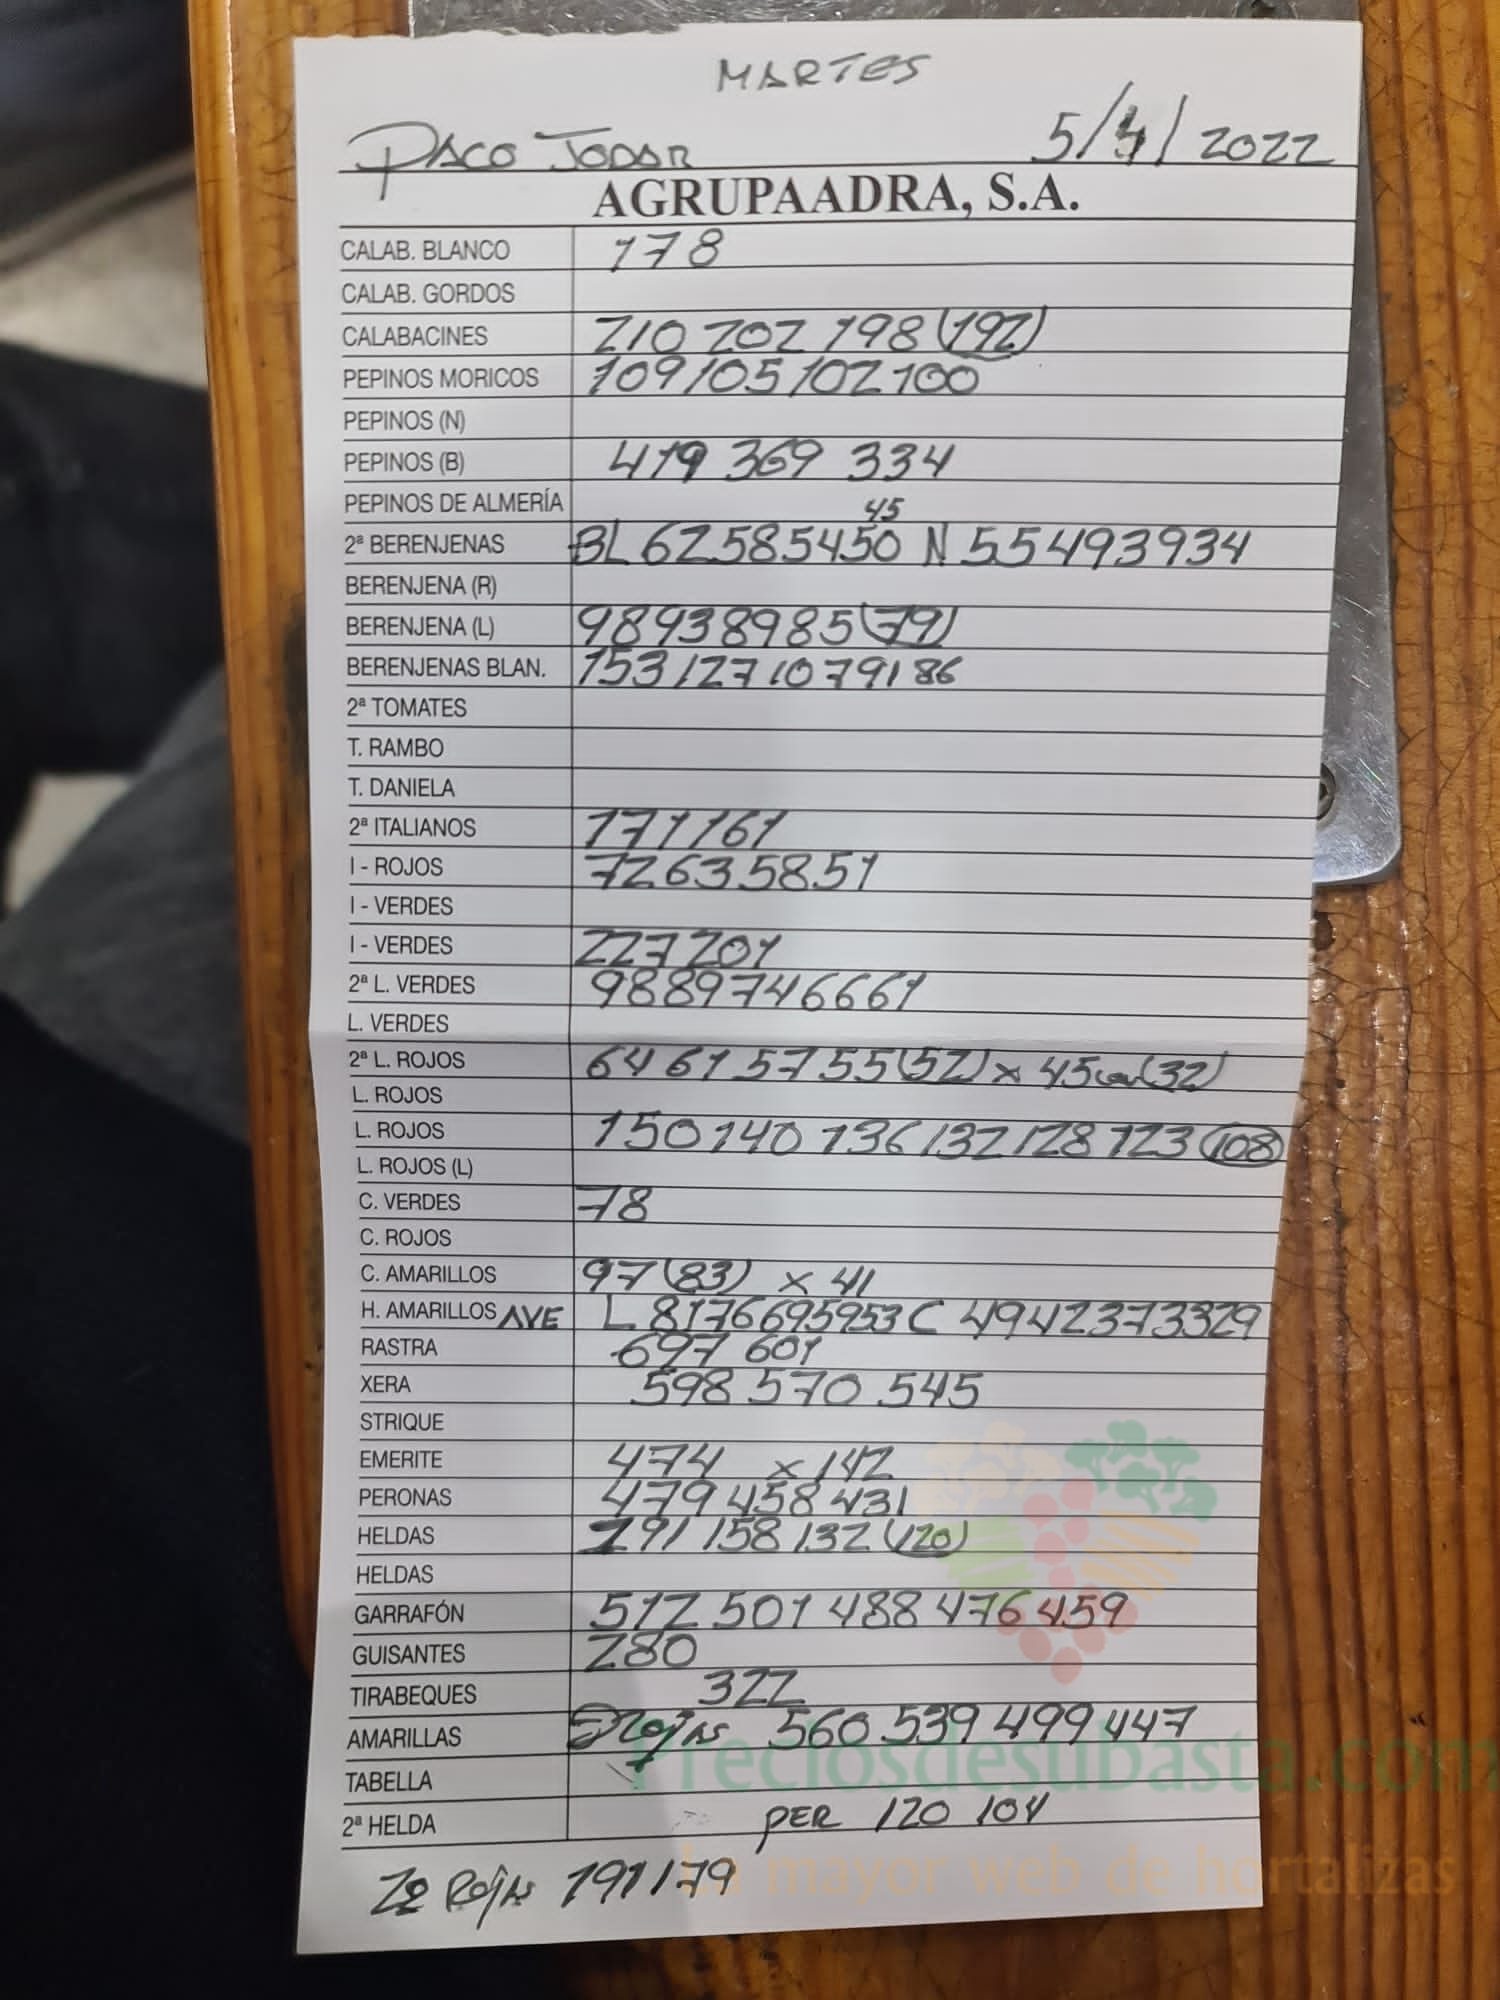 MARTES
PACO JODAR 5/4/2022
AGRUPAADRA, S.A.
CALAB. BLANCO 178
CALAB. GORDOS
CALABACINES 210 202 198 (192)
PEPINOS MORICOS 109 105 102 100
PEPINOS (N)
PEPINOS (B) 419 369 334
PEPINOS DE ALMERÍA
45
2ª BERENJENAS BL 62 58 54 50 N 55 49 39 34
BERENJENA (R)
BERENJENA (L) 98 93 89 85 (79)
BERENJENAS BLAN. 153 127 107 91 86
2ª TOMATES
T. RAMBO
T. DANIELA
2ª ITALIANOS 171 161
I - ROJOS 72 63 58 51
I - VERDES
I - VERDES 227 201
2ª L. VERDES 98 89 74 66 61
L. VERDES
2ª L. ROJOS 64 61 57 55 (52) x 45 (32)
L. ROJOS
L. ROJOS 150 140 136 132 128 123 (108)
L. ROJOS (L)
C. VERDES 78
C. ROJOS
C. AMARILLOS 97 (83) x 41
H. AMARILLOS AVE L 81 76 69 59 53 C 49 42 37 33 29
RASTRA 697 601
XERA 598 570 545
STRIQUE
EMERITE 474 x 142
PERONAS 479 458 431
HELDAS 191 158 132 (120)
HELDAS
GARRAFÓN 512 501 488 476 459
GUISANTES 280
TIRABEQUES 322
AMARILLAS Rojas 560 539 499 447
Preciosdesubasta.com
TABELLA
2ª HELDA PER 120 104
La mayor web de hortalizas
2ª Rojas 191 179